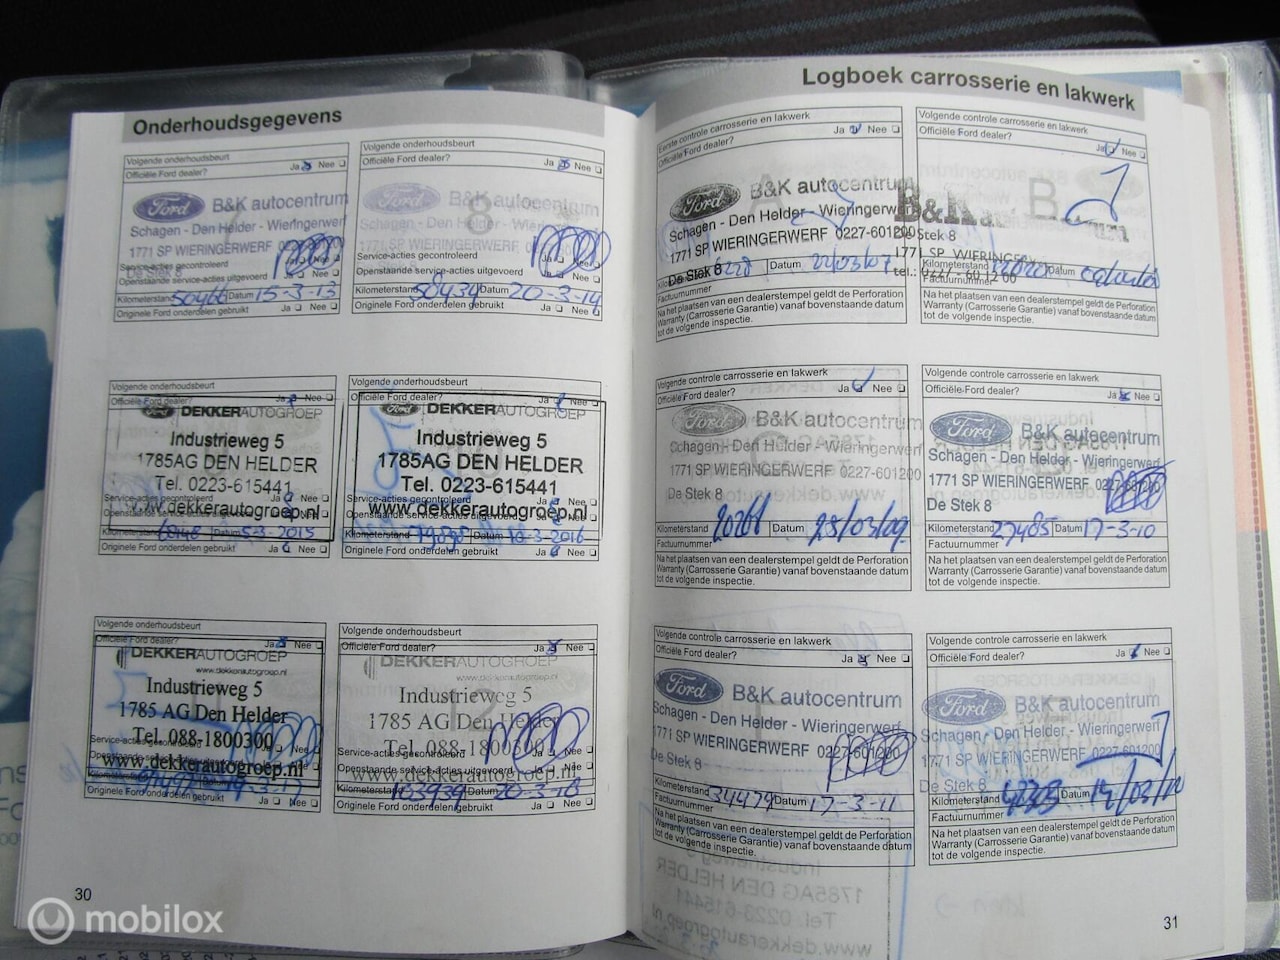 Onderhoudsgegevens
Volgende onderhoudsbeurt
Officiële Ford dealer?
Ja
Nee
Ford
B&K autocentrum
Schagen - Den Helder - Wieringerwerf
1771 SP WIERINGERWERF 0227-601200
De Stek 8
Service-acties gecontroleerd
Openstaande service-acties uitgevoerd
Kilometerstand 50466 Datum 15-3-13
Originele Ford onderdelen gebruikt
Ja
Nee
Volgende onderhoudsbeurt
Officiële Ford dealer?
Ja
Nee
8
Ford
B&K autocentrum
Schagen - Den Helder - Wieringerwerf
1771 SP WIERINGERWERF
Service-acties gecontroleerd
Openstaande service-acties uitgevoerd
Kilometerstand Datum 20-3-14
Originele Ford onderdelen gebruikt
Ja
Nee
Volgende onderhoudsbeurt
Officiële Ford dealer?
Nee
Ford DEKKERAUTOGROEP
Industrieweg 5
1785AG DEN HELDER
Tel. 0223-615441
Service-acties gecontroleerd
www.dekkerautogroep.nl
Openstaande service-acties uitgevoerd
Kilometerstand 68148 Datum 5-3-2015
Originele Ford onderdelen gebruikt
Ja
Nee
Volgende onderhoudsbeurt
Officiële Ford dealer?
Ja
Nee
Ford DEKKERAUTOGROEP
Industrieweg 5
1785AG DEN HELDER
Tel. 0223-615441
Service-acties gecontroleerd
www.dekkerautogroep.nl
Openstaande service-acties uitgevoerd
Kilometerstand Datum
Originele Ford onderdelen gebruikt
Ja
Nee
Volgende onderhoudsbeurt
Officiële Ford dealer?
Ja
Nee
DEKKERAUTOGROEP
www.dekkerautogroep.nl
Industrieweg 5
1785 AG Den Helder
Tel. 088-1800300
Service-acties gecontroleerd
Openstaande service-acties uitgevoerd
www.dekkerautogroep.nl
Kilometerstand
Originele Ford onderdelen gebruikt
Ja
Nee
Volgende onderhoudsbeurt
Officiële Ford dealer?
Ja
Nee
DEKKERAUTOGROEP
www.dekkerautogroep.nl
12
Industrieweg 5
1785 AG Den Helder
Tel. 088-1800300
Service-acties gecontroleerd
Openstaande service-acties uitgevoerd
www.dekkerautogroep.nl
Kilometerstand Datum 20-3-18
Originele Ford onderdelen gebruikt
Ja
Nee
30
Logboek carrosserie en lakwerk
Eerste controle carrosserie en lakwerk
Officiële Ford dealer?
Ja
Nee
A
Ford
B&K autocentrum
Schagen - Den Helder - Wieringerwerf
1771 SP WIERINGERWERF 0227-601200
De Stek 8
Datum 22/03/07
Factuurnummer
Na het plaatsen van een dealerstempel geldt de Perforation
Warranty (Carrosserie Garantie) vanaf bovenstaande datum
tot de volgende inspectie.
Volgende controle carrosserie en lakwerk
Officiële Ford dealer?
Ja
Nee
B
B&K
De Stek 8
1771 SP WIERINGERWERF
tel.: 0227 - 60 12 00
Kilometerstand Datum
Factuurnummer
Na het plaatsen van een dealerstempel geldt de Perforation
Warranty (Carrosserie Garantie) vanaf bovenstaande datum
tot de volgende inspectie.
Volgende controle carrosserie en lakwerk
Officiële Ford dealer?
Ja
Nee
Ford
B&K autocentrum
Schagen - Den Helder - Wieringerwerf
1771 SP WIERINGERWERF 0227-601200
De Stek 8
Kilometerstand 20261 Datum 25/03/09
Factuurnummer
Na het plaatsen van een dealerstempel geldt de Perforation
Warranty (Carrosserie Garantie) vanaf bovenstaande datum
tot de volgende inspectie.
Volgende controle carrosserie en lakwerk
Officiële Ford dealer?
Ja
Nee
Ford
B&K autocentrum
Schagen - Den Helder - Wieringerwerf
1771 SP WIERINGERWERF 0227-601200
De Stek 8
Kilometerstand 27485 Datum 17-3-10
Factuurnummer
Na het plaatsen van een dealerstempel geldt de Perforation
Warranty (Carrosserie Garantie) vanaf bovenstaande datum
tot de volgende inspectie.
Volgende controle carrosserie en lakwerk
Officiële Ford dealer?
Ja
Nee
Ford
B&K autocentrum
Schagen - Den Helder - Wieringerwerf
1771 SP WIERINGERWERF 0227-601200
De Stek 8
Kilometerstand 34479 Datum 17-3-11
Factuurnummer
Na het plaatsen van een dealerstempel geldt de Perforation
Warranty (Carrosserie Garantie) vanaf bovenstaande datum
tot de volgende inspectie.
Volgende controle carrosserie en lakwerk
Officiële Ford dealer?
Ja
Nee
Ford
B&K autocentrum
Schagen - Den Helder - Wieringerwerf
1771 SP WIERINGERWERF 0227-601200
De Stek 8
Kilometerstand 42305 Datum
Factuurnummer
Na het plaatsen van een dealerstempel geldt de Perforation
Warranty (Carrosserie Garantie) vanaf bovenstaande datum
tot de volgende inspectie.
31
mobilox